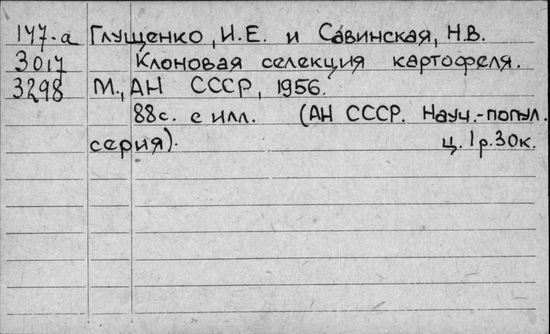 147-а Глущенко, И.Е. и Савинская, Н.В.
3017 Клоновая селекция картофеля.
3298 М., АН СССР, 1956.
88с. с илл. (АН СССР. Науч.-попул.
серия). ц. 1р.30к.